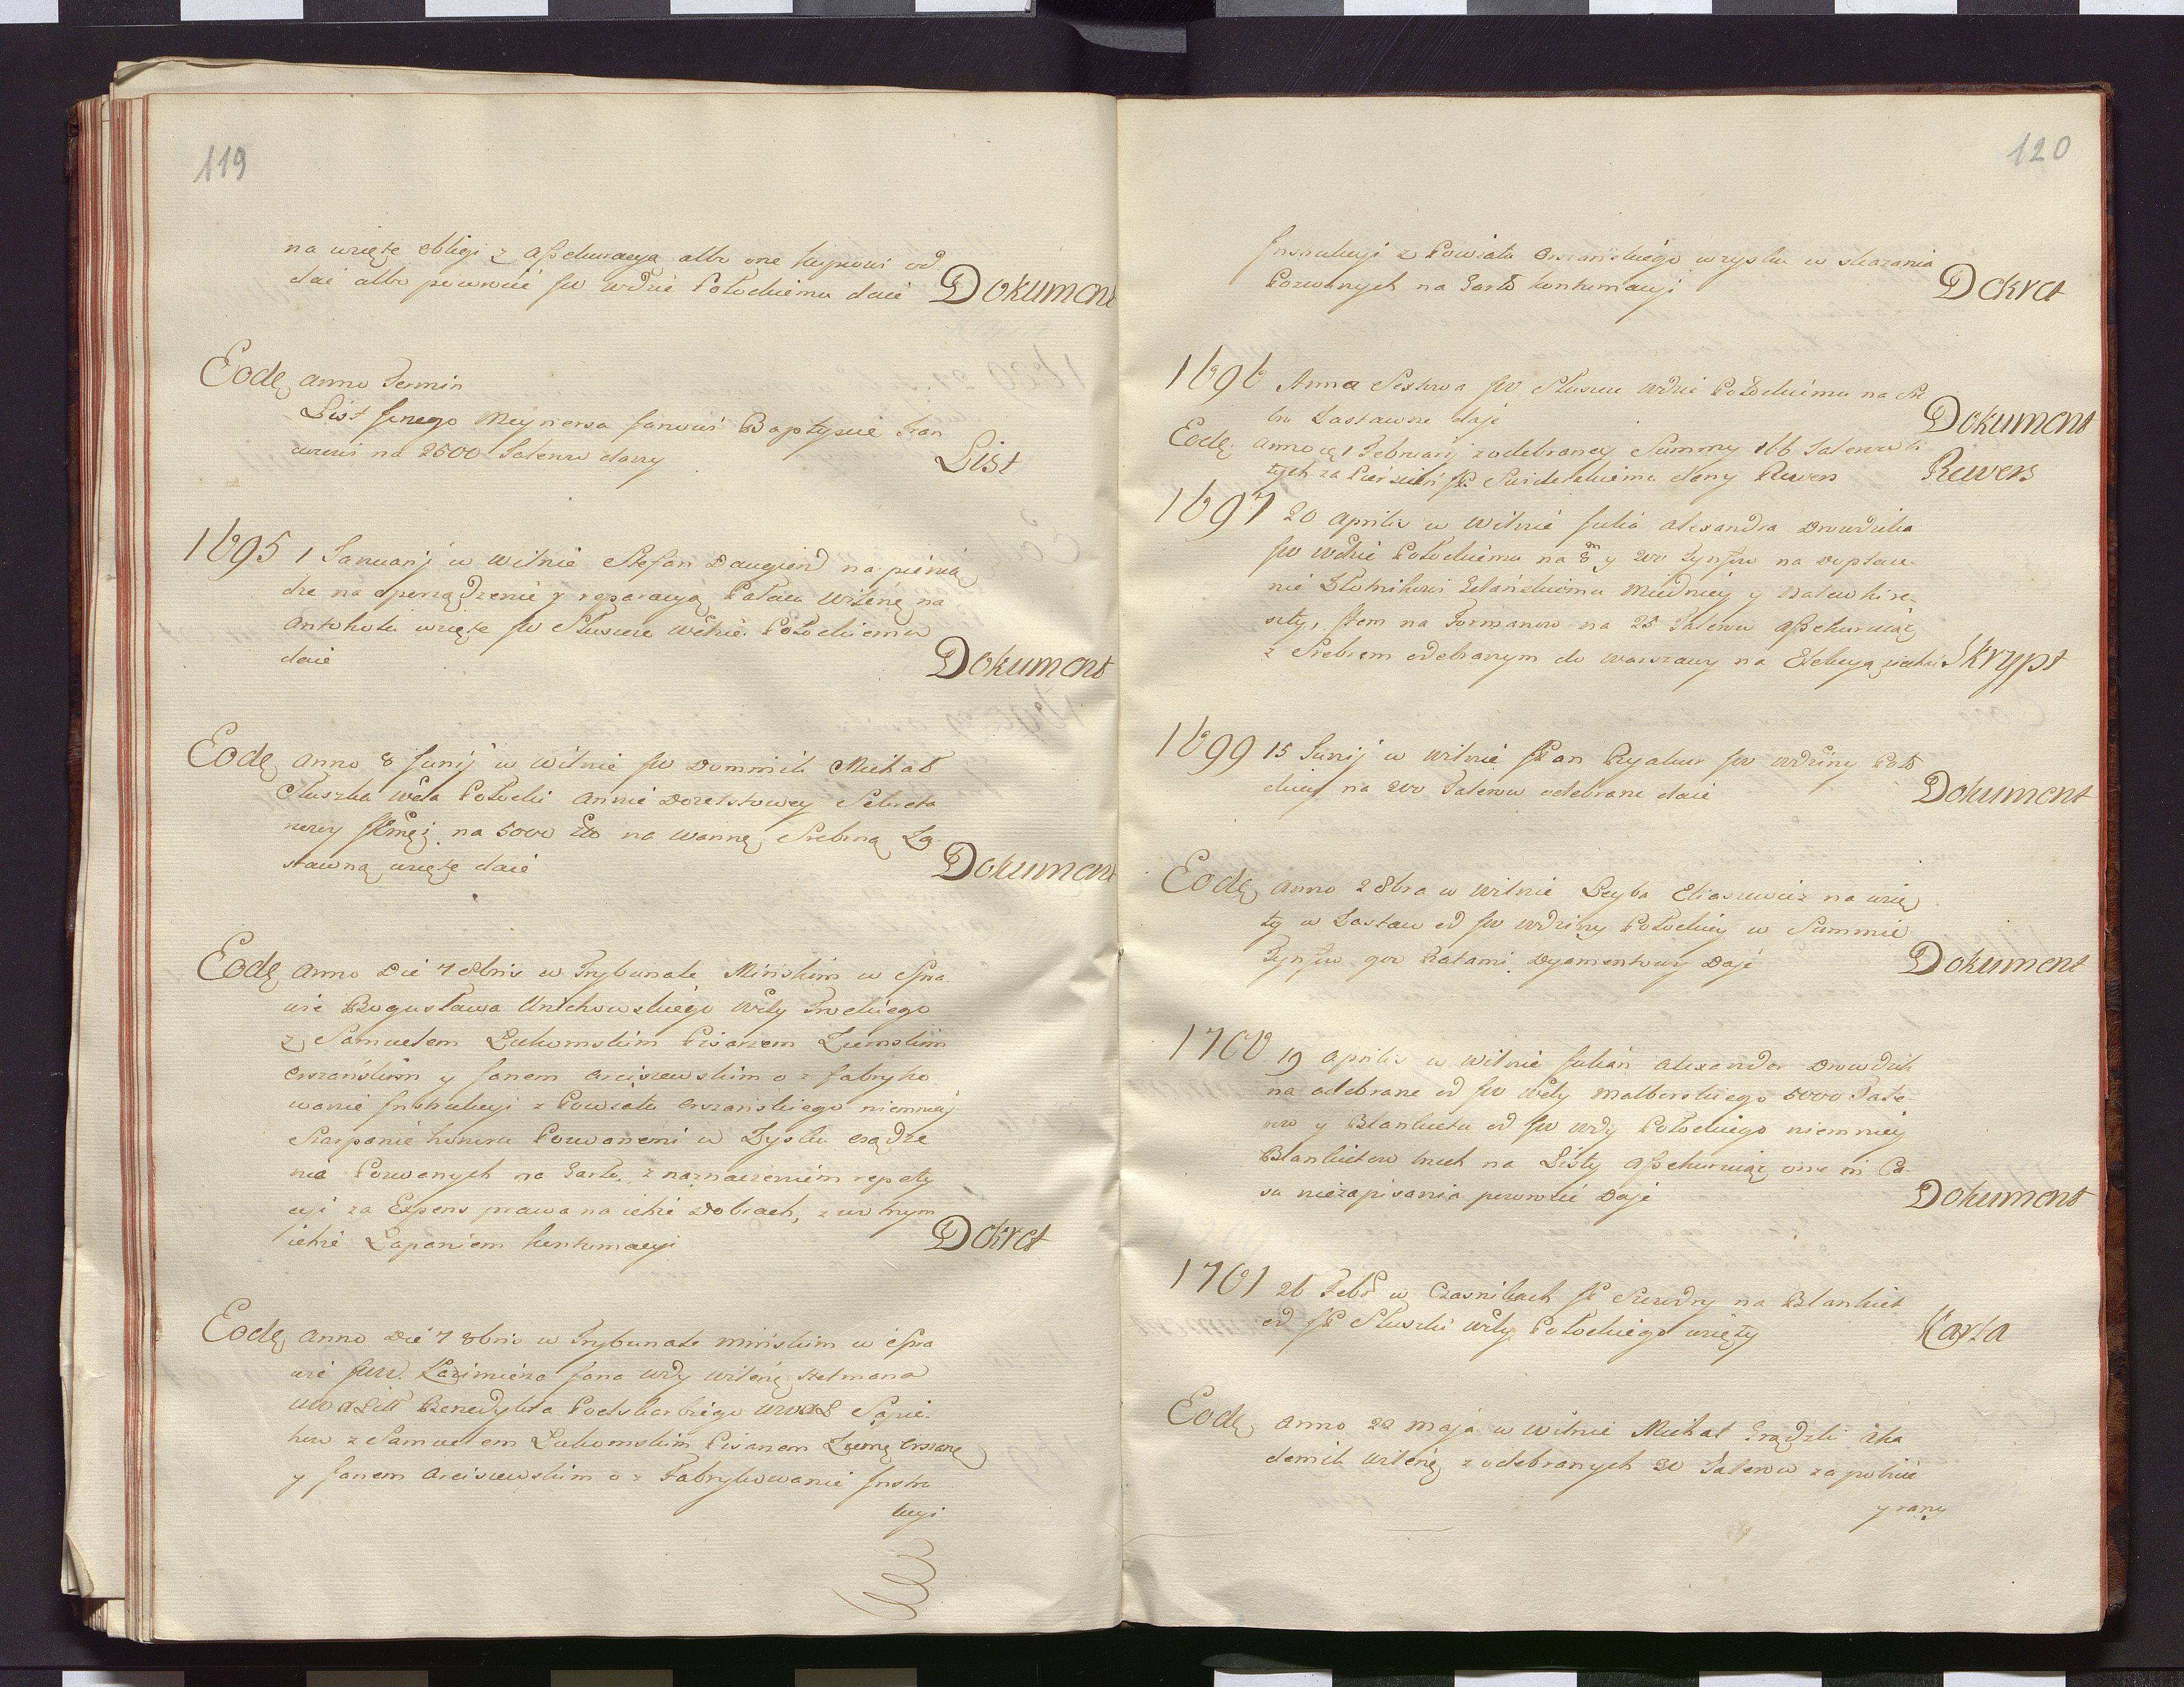 119
na wzięte obligi z assekuracyą albo one kupcowi od
dai albo powrocić JW wdzie Połockiemu daie Dokument
Eodę anno Termin
List Jmego Meynersa Janowi Baptyscie Fran
cuzowi na 2500 Talerow dany List
1695 1 Januarij w Wilnie Stefan Daugierd na pienią
dze na sporządzenie y reparacyą Pałacu Wileńę na
Antokolu wzięte JW Słuszce Wdzie Połockiemu
daie Dokument
Eodę anno 8 Junij w Wilnie JW Dominik Michał
Słuszka Wda Połocki Annie Dorszstowey Sekreta
rzowy JKMę na 5000 zło na Wannę Srebrną Za
stawną wziętę daie Dokument
Eodę anno Die 7 8bris w Trybunale Mińskim w Spra
wie Bogusława Unichowskiego Wdy Trockiego
z Samuelem Łukomskim Pisarzem Ziemskim
Orszańskim y Janem Arciszewskim o z fabryko
wanie Instrukcyi z Powiatu Orszańskiego niemniey
Szarpanie honoru Powanemi w Zysku osądze
nia Pozwanych na Garło, z naznaczeniem repety
cyi za Expens prawa na ichże Dobrach, z wolnym
ichże Łapaniem kontumacyi Dekret
Eodę anno Die 7 8bris w Trybunale mińskim w Spra
wie JWW. Kazimierza Jana Wdy Wileńę Hetmana
WWXLitt Benedykta Podskarbiego WWXL Sapie
how z Samuelem Łukomskim Pisarzem Ziemę Orszanę
y Janem Arciszewskim o z Fabrykowanie Instru
kcyi
120
Instrukcyi z Powiatu Orszańskiego w zysku w skazania
Pozwanych na Garło kontumacyi Dekret
1696 Anna Szostowa JW Słuszce Wdzie Połockiemu na Sre
bro Zastawne daje Dokument
Eodę anno 1 Februarij z odebraney Summy 166 Talerow bi
tych za Pierścień JP. Suideteckiemu dany Rewers Rewers
1697 20 Aprilis w Wilnie Julia Alexandra Drowdzika
JW Wdzie Połockiemu na 8 y 200 Tynfow na Dopłace
nie Złotnikowi Gdańskiemu Miednicy y Nalewki re
szty, Item na Formanow na 25 Talerow assekuruiąc
z Srebrem odebranym do Warszawy na Elekcyą iechać Skrypt
1699 15 Junij w Wilnie JPan Ryakur JW wdziny Poło
ckiey na 200 Talerow odebrane daie Dokument
Eodę anno 2 8bra w Wilnie Leyba Eliaszewicz na wzię
ty w Zastaw od JW wdziny Połockiey w Summie
Tynfow 900 Ratami Dyamentowy Daje Dokument
1700 19 Aprilis w Wilnie Julian Alexander Drowdzik
na odebrane od JW Wdy Malborskiego 5000 Tale
row y Blankietu od JW Wdy Połockiego niemniey
Blankietow trzech na Listy assekuruiąc one in Ca
su niezapisania powrocić Daje Dokument
1701 26 Feb. w Czasnikach JP Szczodry na Blankiet
od JP Słuszki Wdy Połockiego wzięty Karta
Eodę anno 22 Maja w Wilnie Michał Grądzki Aka
demik Wileńę z odebranych 20 Talerow za policie
y rany